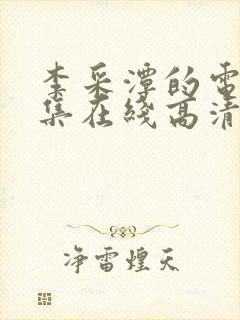 李采潭的電
集在綫高清
净雷煌天